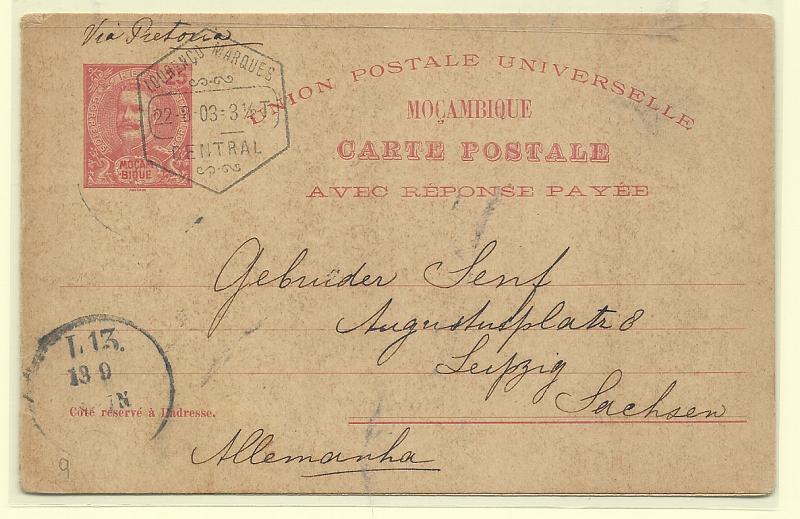 Via Pretoria
LOURENÇO MARQUES
22-8-03-3½T
CENTRAL
25
MOÇAM
BIQUE
UNION POSTALE UNIVERSELLE
MOÇAMBIQUE
CARTE POSTALE
AVEC RÉPONSE PAYÉE
Gebrüder Senf
Augustusplatz 8
Leipzig
Sachsen
Allemanha
L 13.
18 9
N
Côté réservé à l'adresse.
9